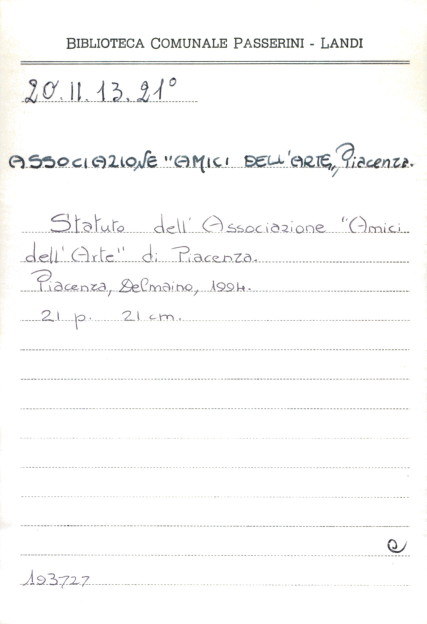 BIBLIOTECA COMUNALE PASSERINI - LANDI
20.II.13.21°
ASSOCIAZIONE "AMICI DELL'ARTE", Piacenza.
Statuto dell'Associazione "Amici
dell'Arte" di Piacenza.
Piacenza, Delmaino, 1994.
21 p. 21 cm.
e
193727